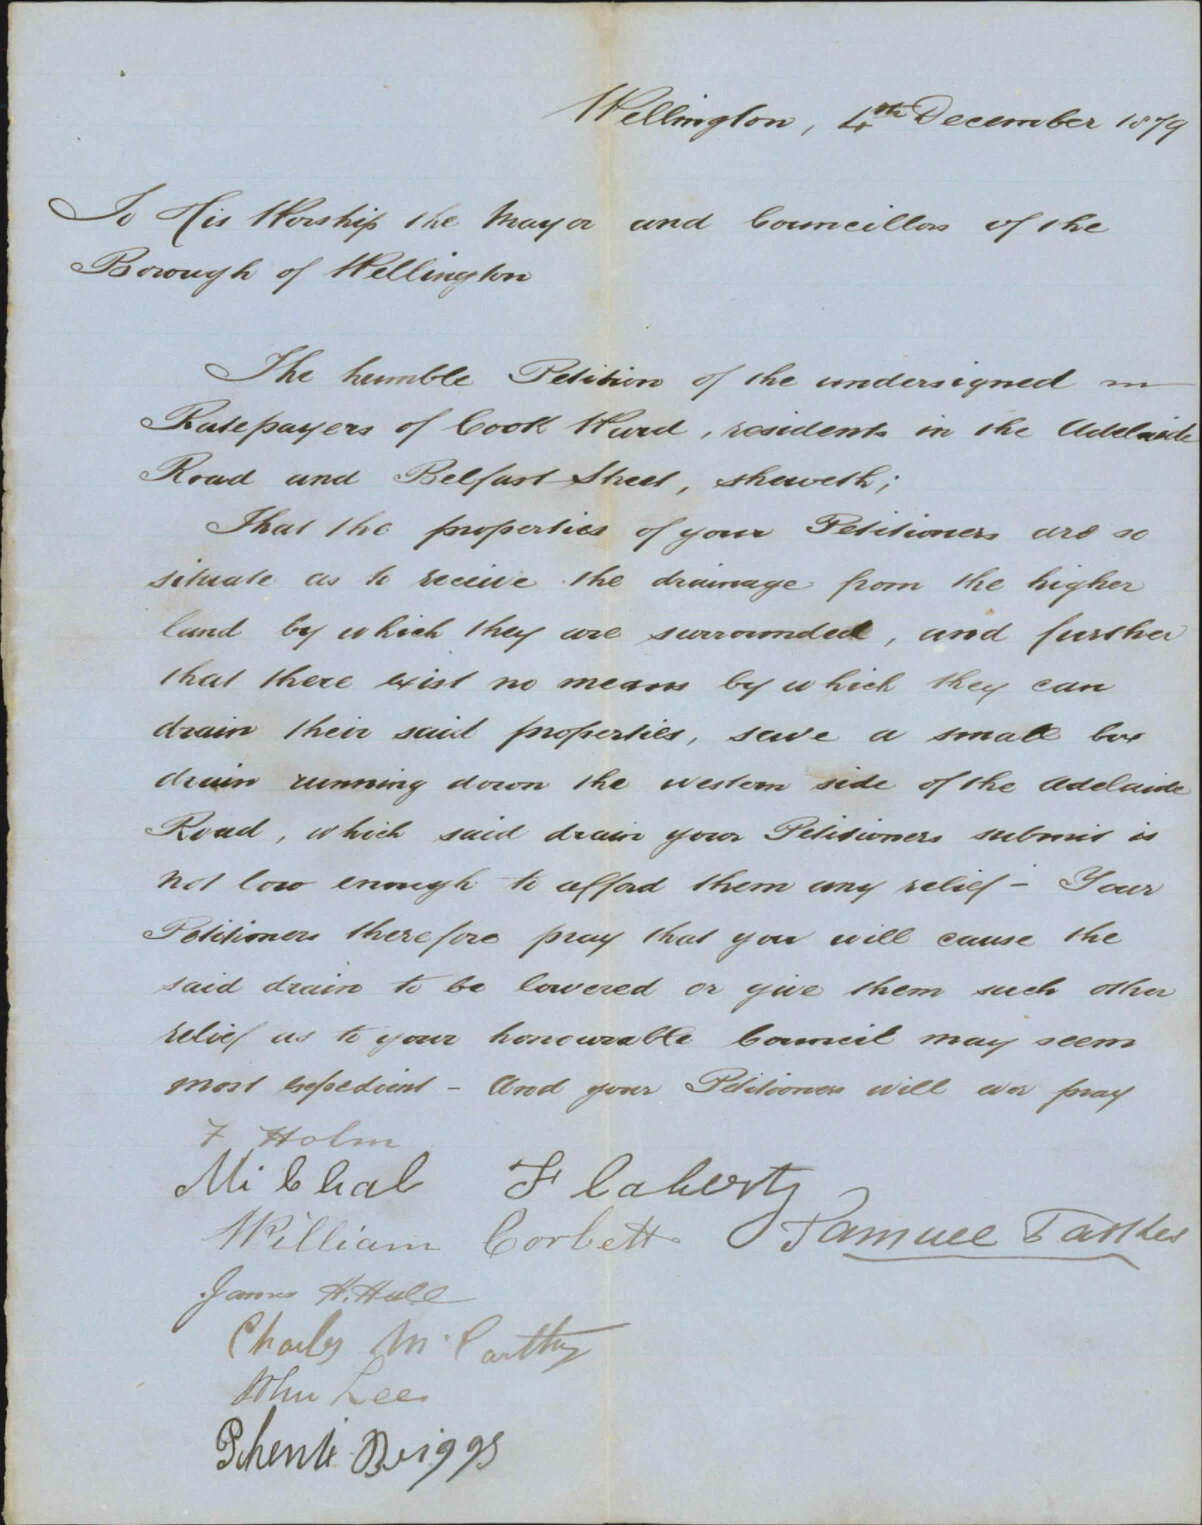 Wellington, 4th December 1879
To His Worship the Mayor and Councillors of the
Borough of Wellington
The humble Petition of the undersigned
Ratepayers of Cook Ward, residents in the Adelaide
Road and Belfast Street, sheweth;
That the properties of your Petitioners are so
situate as to receive the drainage from the higher
land by which they are surrounded, and further
that there exist no means by which they can
drain their said properties, save a small box
drain running down the western side of the Adelaide
Road, which said drain your Petitioners submit is
not low enough to afford them any relief - Your
Petitioners therefore pray that you will cause the
said drain to be lowered or give them such other
relief as to your honourable Council may seem
most expedient - And your Petitioners will ever pray
F Holm
Michal Flaherty
William Corbett Samuel
James H. Hall
Charles McCarthy
John Lee
Briggs